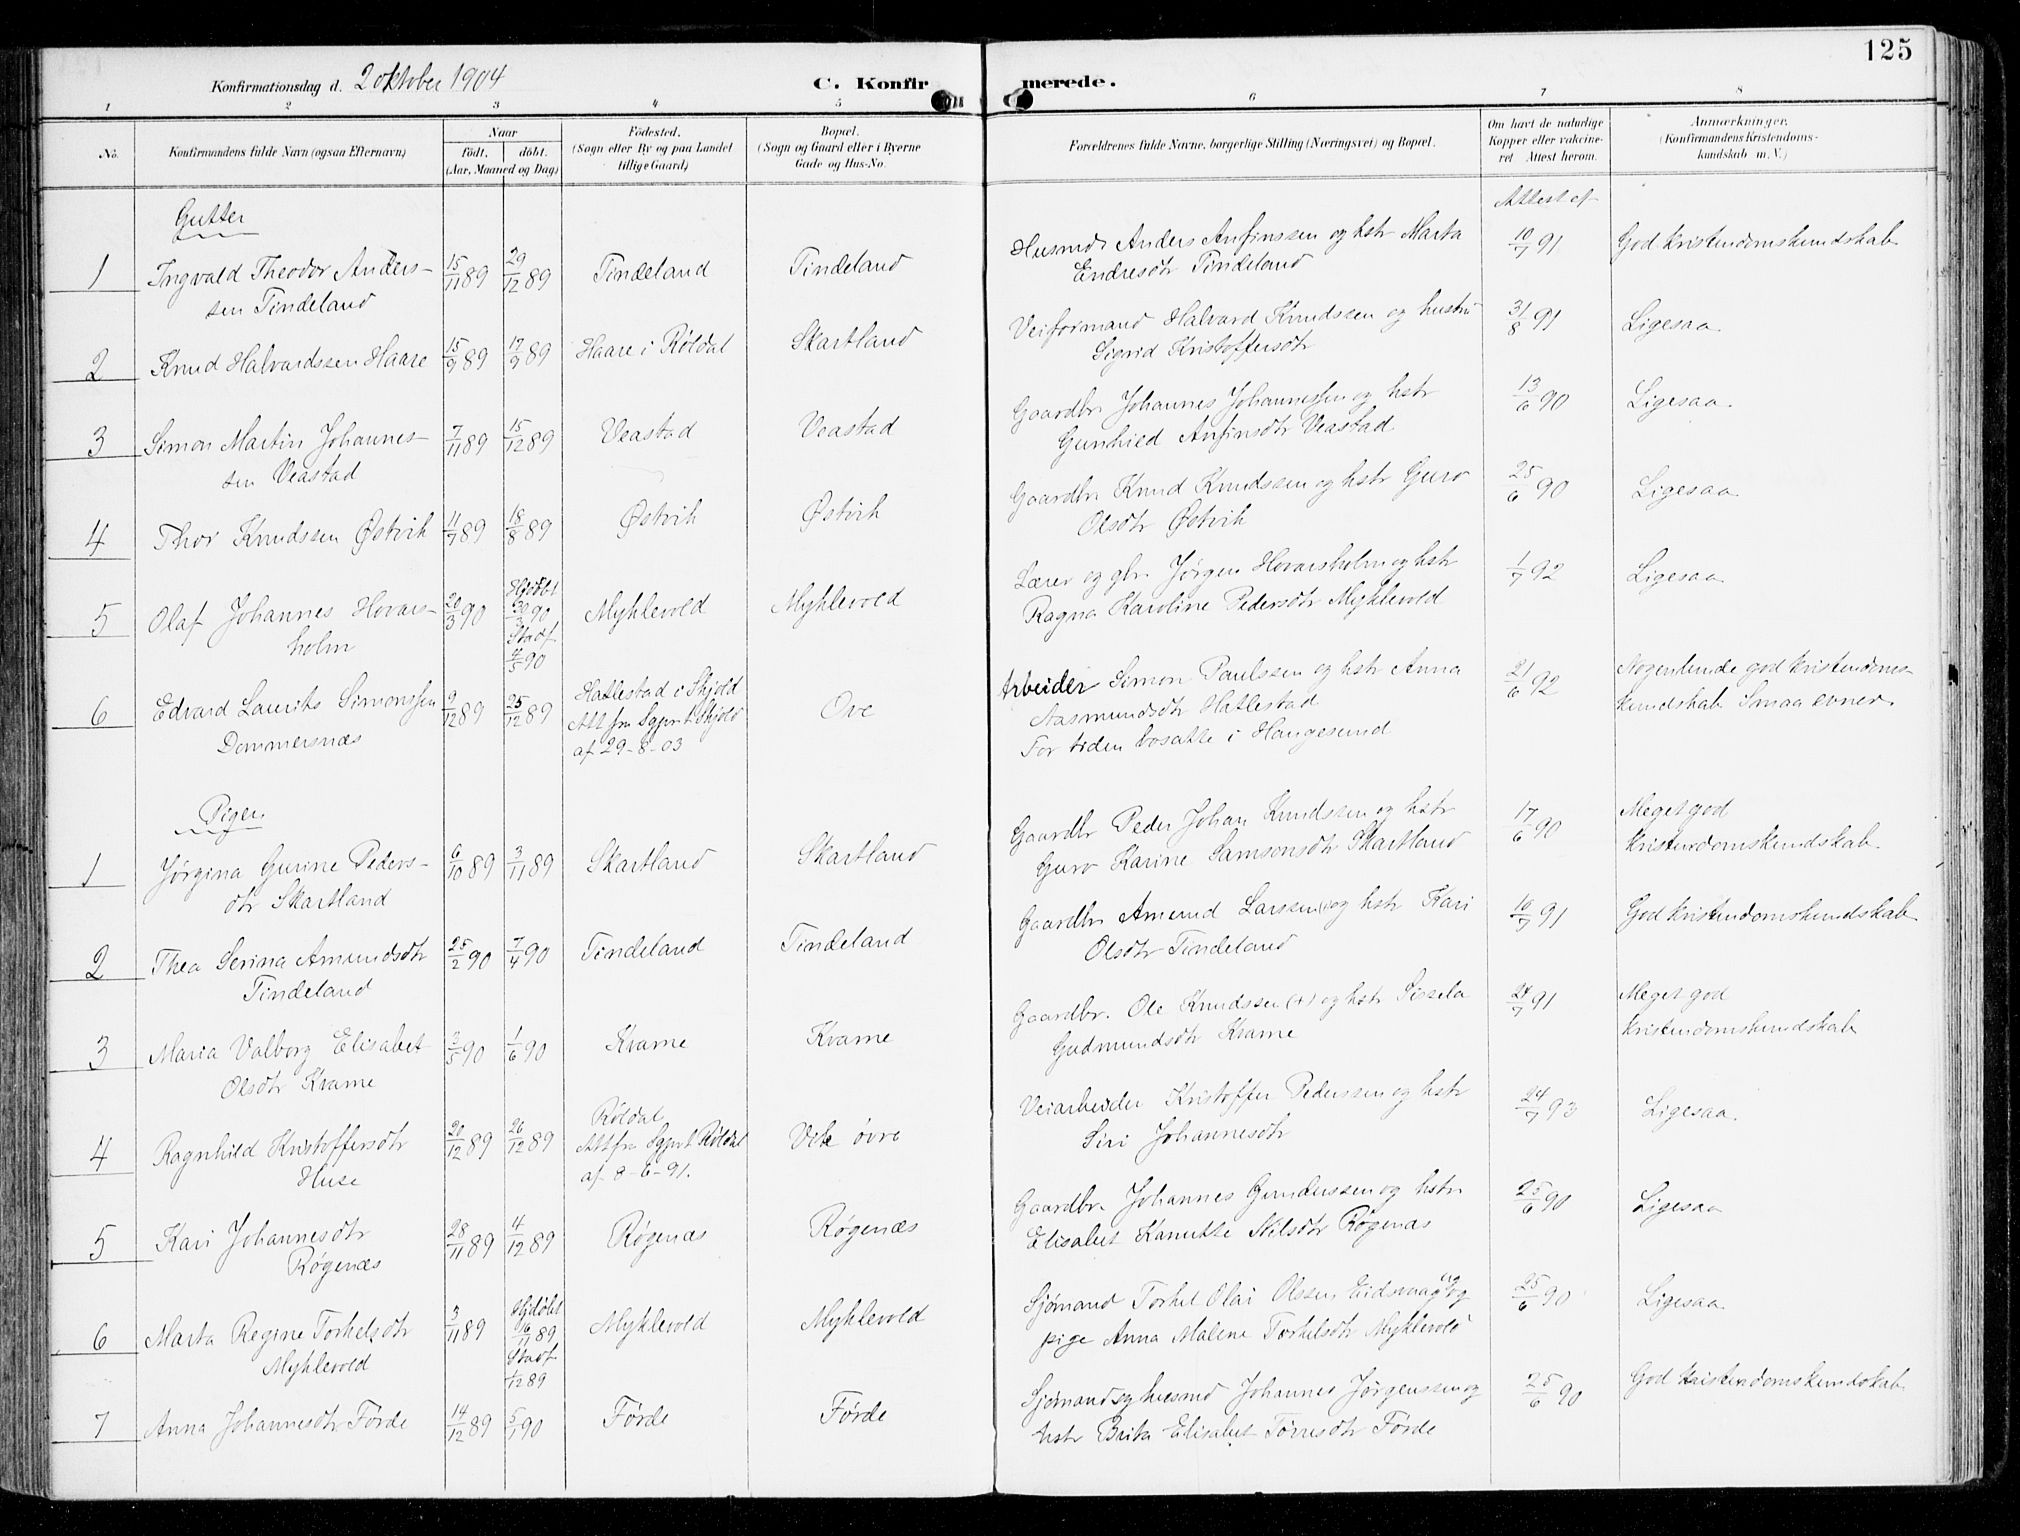 125
Konfirmationsdag d. 2 oktober 1904
C. Konfirmerede.
1 2 3 4 5 6 7 8
No.
Konfirmandens fulde Navn (ogsaa Efternavn)
Naar
födt, döbt.
(Aar, Maaned og Dag)
Födested.
(Sogn eller By og paa Landet
tillige Gaard)
Bopæl.
(Sogn og Gaard eller i Byerne
Gade og Hus-No.
Forældrenes fulde Navne, borgerlige Stilling (Næringsvei) og Bopæl.
Om havt de naturlige
Kopper eller vakcine-
ret Attest herom.
Anmærkninger.
(Konfirmandens Kristendoms-
kundskab m. V.)
Gutter
Attest af
1 Ingvald Theodor Anders-
sen Tindeland
15/11 89 29/12 89 Tindeland Tindeland
Husmd. Anders Anfinssen og hstr Marta
Endresdtr Tindeland
10/7 91 God kristendomskundskab
2 Knud Halvardssen Haare 15/9 89 17/9 89 Haare i Røldal Skartland
Veiformand Halvard Knudssen og hustru
Sigrid Kristoffersdtr
31/8 91 Ligesaa
3 Simon Martin Johannes-
sen Veastad
7/11 89 15/12 89 Veastad Veastad
Gaardbr. Johannes Johannessen og hstr
Gunhild Anfinsdtr Veastad
13/6 90 Ligesaa.
4 Thor Knudssen Østvik 11/7 89 18/8 89 Østvik Østvik
Gaardbr. Knud Knudssen og hstr Guro
Olsdtr Østvik
25/6 90 Ligesaa
5 Olaf Johannes Hovars-
holm
20/3 90 Hjdøbt
30/3 90
Stadf.
4/5 90
Myklevold Myklevold
Lærer og gbr. Jørgen Hovarsholm og hstr
Ragna Karoline Pedersdtr Myklevold
1/7 92 Ligesaa
6 Edvard Laurits Simonssen
Dommersnæs
9/12 89 25/12 89 Hatlestad i Skjold
Att fra Sgprt. Skjold
af 29-8-03
Ove
Arbeider Simon Paulssen og hstr Anna
Aasmundsdtr Hatlestad
For tiden bosatte i Haugesund
21/6 92 Nogenlunde god kristendoms-
kundskab. Smaa evner.
Piger.
1 Jørgina Gurine Peders-
dtr Skartland
6/10 89 3/11 89 Skartland Skartland
Gaardbr Peder Johan Knudssen og hstr
Guro Karine Samsonsdtr Skartland
17/6 90 Meget god
kristendomskundskab.
2 Thea Serina Amundsdtr
Tindeland
25/2 90 7/4 90 Tindeland Tindeland
Gaardbr. Amund Larssen og hstr Kari
Olsdtr Tindeland
10/7 91 God kristendomskundskab
3 Maria Valborg Elisabet
Olsdtr Kvame
3/5 90 1/6 90 Kvame Kvame
Gaardbr. Ole Knudssen (+) og hstr Sissela
Gudmundsdtr Kvame
24/7 91 Meget god
kristendomskundskab
4 Ragnhild Kristoffersdtr
Huse
20/12 89 26/12 89 Røldal
Att fra Sgprt. Røldal
af 8-6-91.
Vike øvre
Veiarbeider Kristoffer Pederssen og hstr
Siri Johannesdtr
24/7 93 Ligesaa.
5 Kari Johannesdtr
Røgenæs
28/11 89 4/12 89 Røgenæs Røgenæs
Gaardbr. Johannes Gunderssen og hstr
Elisabet Kanutte Nilsdtr Røgenæs
25/6 90 Ligesaa
6 Marta Regine Torkelsdtr
Myklevold
3/11 89 Hjdøbt
16/11 89
Stadf.
1/12 89
Myklevold Myklevold
Sjømand Torkel Olai Olsen Eidsvaag og
pige Anna Malene Torkelsdtr Myklevold
25/6 90 Ligesaa
7 Anna Johannesdtr Førde 14/12 89 5/1 90 Førde Førde
Sjømand og husmd Johannes Jørgenssen og
hstr Brita Elisabet Tørresdtr Førde
25/6 90 God kristendomskundskab